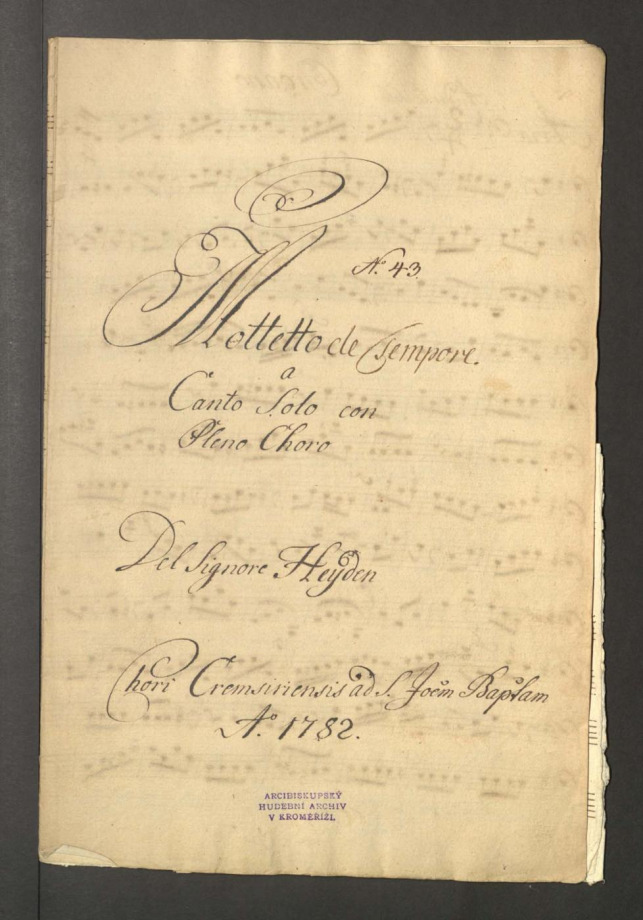 N.º 43.
Mottetto de Tempore.
a
Canto Solo con
Pleno Choro
Del Signore Heÿden
Chori Cremsiriensis ad S. Joem̃ Bap̃tam
A.º 1782.
ARCIBISKUPSKÝ
HUDEBNÍ ARCHIV
V KROMĚŘÍŽI.